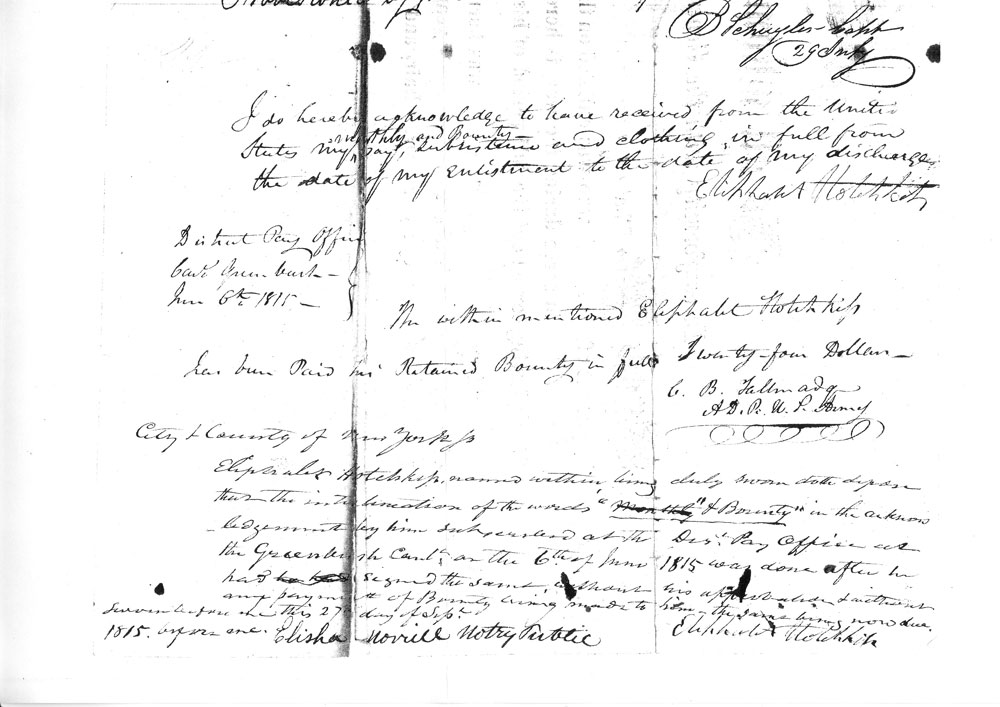 B Schuyler Capt
29 Infy
I do hereby acknowledge to have received from the United
monthly and Bounty
States my pay, subsistence and clothing in full from
the date of my Enlistment to the date of my discharge
Eliphalet Hotchkiss
District Pay Office
Cant Greenbush
June 6th 1815
The within mentioned Eliphalet Hotchkiss
has been Paid his Retained Bounty in full Twenty-four Dollars
C. B. Tallmadge
A D. P. U. S. Army
City & County of New York ss
Eliphalet Hotchkiss, named within, being duly sworn doth depose
that the interlineation of the words "Monthly" & Bounty" in the acknow
ledgement by him subscribed at the Dist. Pay Office at
the Greenbush Cant. on the 6th of June 1815 was done after he
had signed the same without his approbation & without
any payment of Bounty being made to him the same being now due.
Sworn before me this 27 day of Sept.
1815. before me. Elisha Morrill Notry Public
Eliphalet Hotchkiss